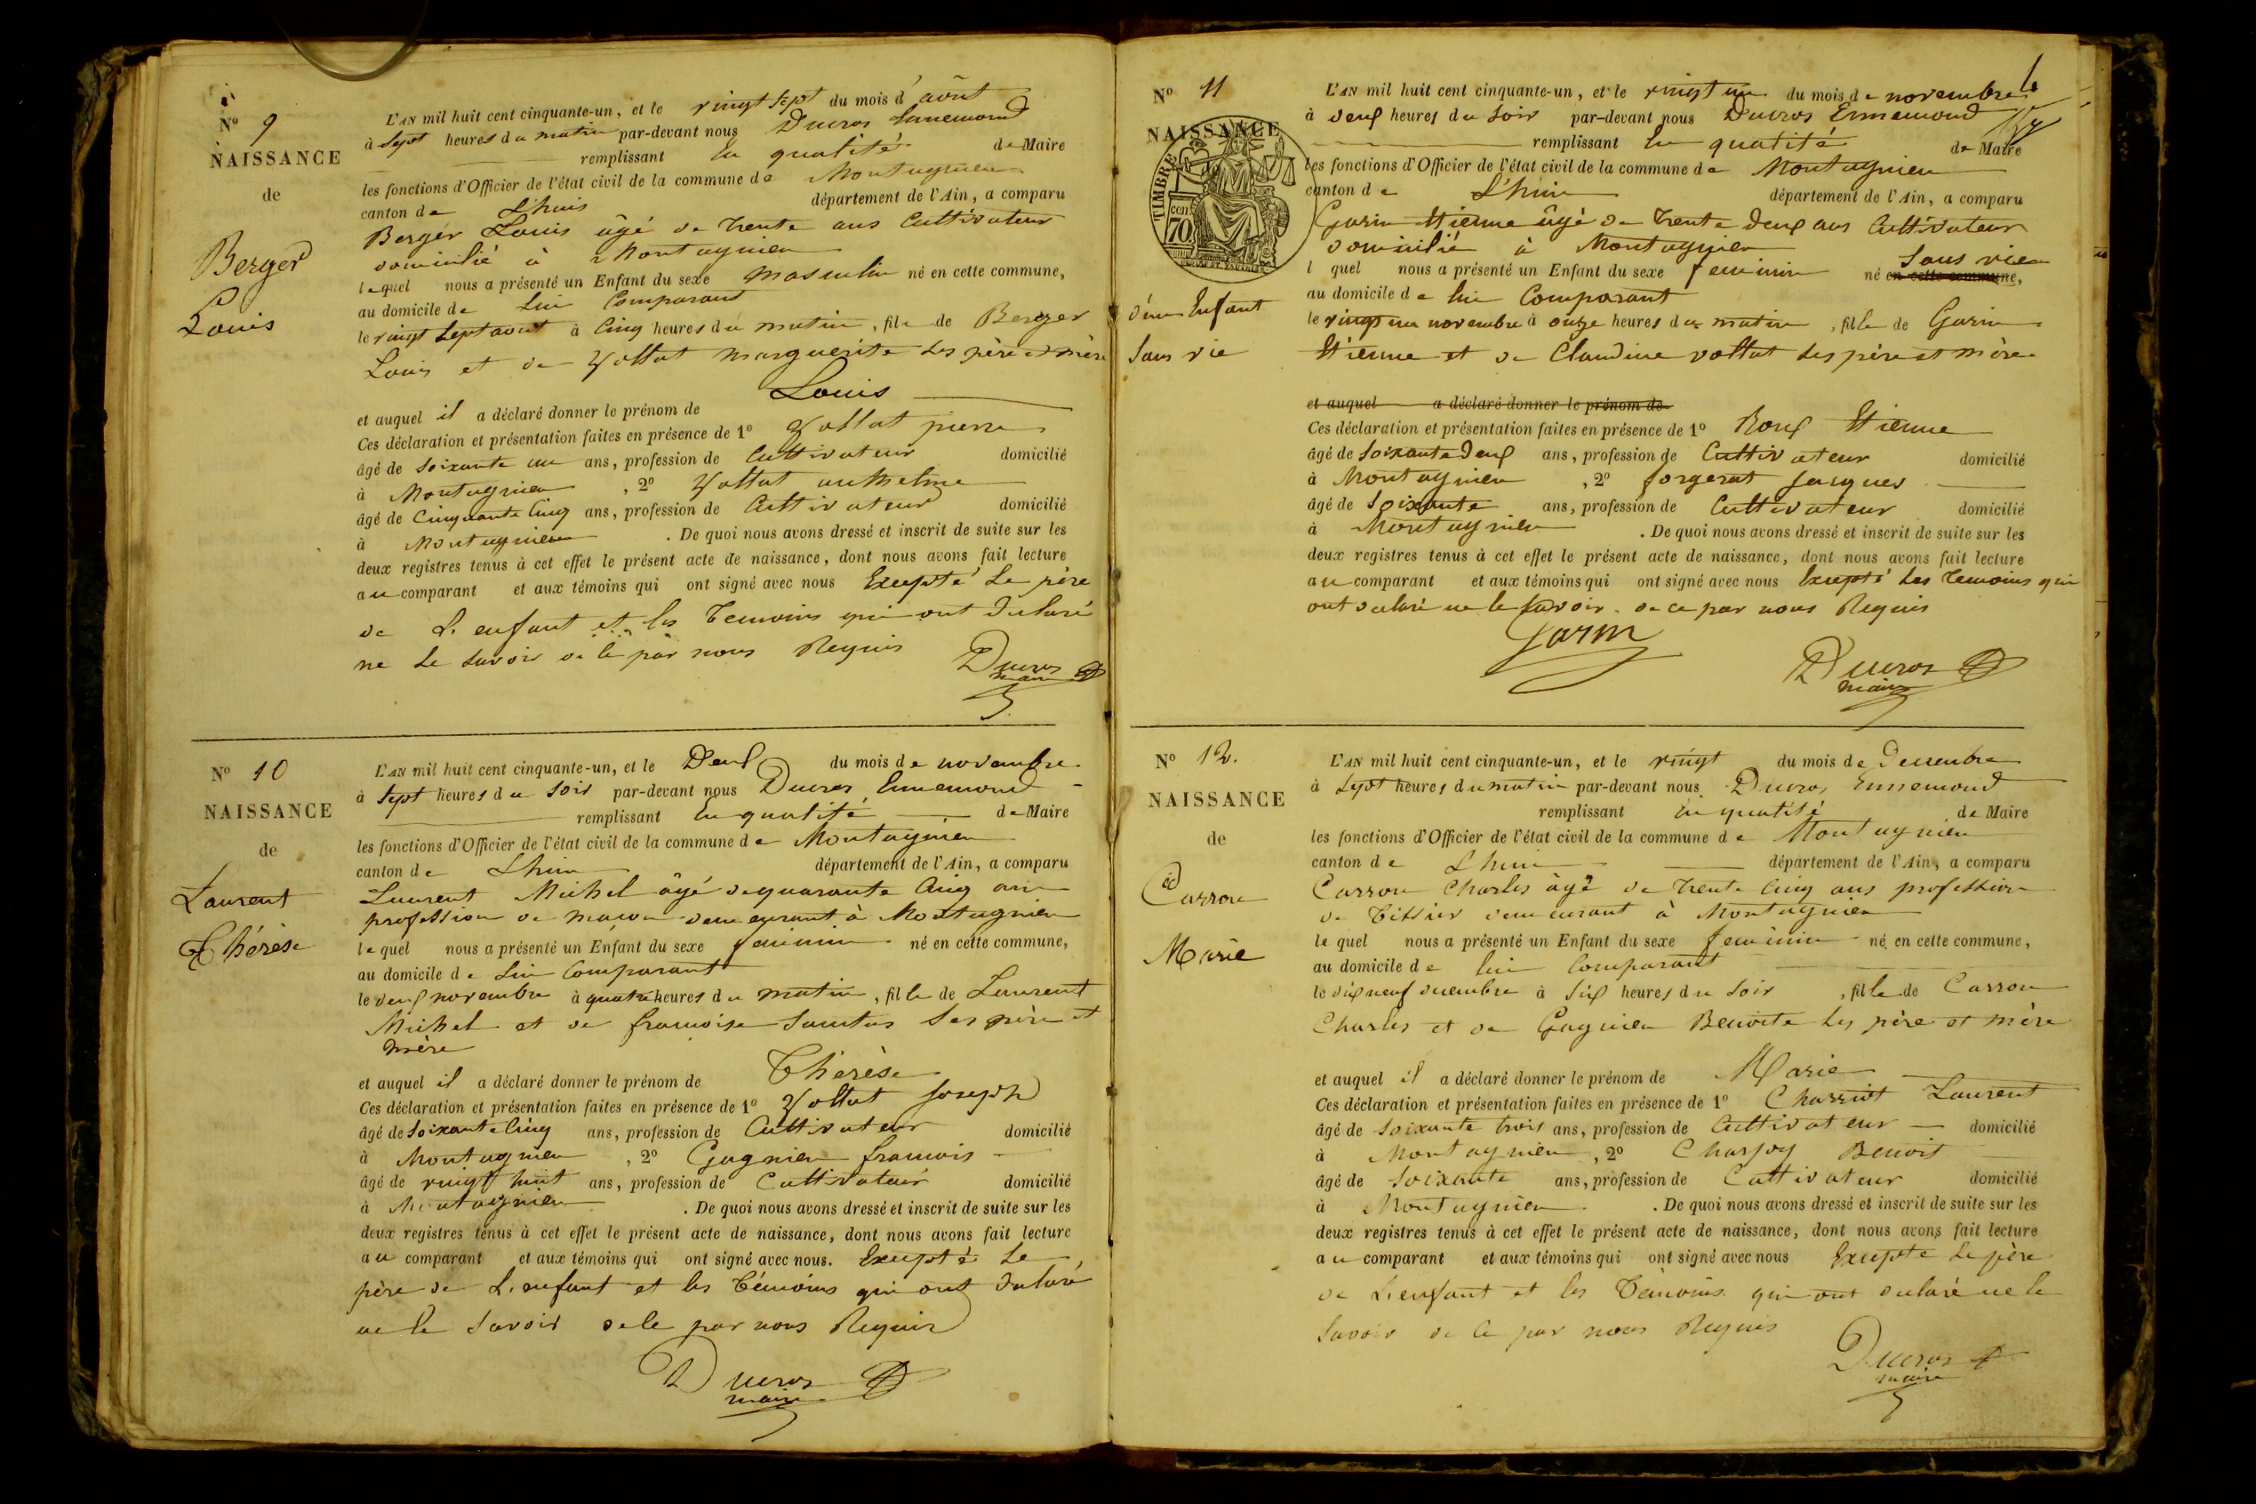 N° 9
NAISSANCE
de
Berger
Louis
L'AN mil huit cent cinquante-un, et le vingt sept du mois d'août
à sept heures du matin par-devant nous Ducros Ennemond
remplissant en qualité de Maire
les fonctions d'Officier de l'état civil de la commune de Montagnieu
canton de Lhuis département de l'Ain, a comparu
Berger Louis âgé de trente ans Cultivateur
domicilié à Montagnieu
lequel nous a présenté un Enfant du sexe masculin né en cette commune,
au domicile de lui Comparant
le vingt sept aout à cinq heures du matin, fils de Berger
Louis et de Vollat Marguerite ses père et mère
et auquel il a déclaré donner le prénom de Louis
Ces déclaration et présentation faites en présence de 1° Vollat pierre
âgé de soixante un ans, profession de Cultivateur domicilié
à Montagnieu, 2° Vollat anthelme
âgé de Cinquante Cinq ans, profession de Cultivateur domicilié
à Montagnieu. De quoi nous avons dressé et inscrit de suite sur les
deux registres tenus à cet effet le présent acte de naissance, dont nous avons fait lecture
au comparant et aux témoins qui ont signé avec nous Excepté Le père
de L'enfant et les Temoins qui ont déclaré
ne Le savoir de ce par nous Requis
Ducros
maire
N° 10
NAISSANCE
de
Laurent
Thérèse
L'AN mil huit cent cinquante-un, et le Deux du mois de novembre
à sept heures du soir par-devant nous Ducros Ennemond
remplissant en qualité de Maire
les fonctions d'Officier de l'état civil de la commune de Montagnieu
canton de Lhuis département de l'Ain, a comparu
Laurent Michel âgé de quarante Cinq ans
profession de maçon demeurant à Montagnieu
lequel nous a présenté un Enfant du sexe feminin né en cette commune,
au domicile de lui Comparant
le deux novembre à quatre heures du matin, fille de Laurent
Michel et de francoise ses père et
mère
et auquel il a déclaré donner le prénom de Thérèse
Ces déclaration et présentation faites en présence de 1° Vollat Joseph
âgé de soixante Cinq ans, profession de Cultivateur domicilié
à Montagnieu, 2° Gagnieu francois
âgé de vingt huit ans, profession de Cultivateur domicilié
à Montagnieu. De quoi nous avons dressé et inscrit de suite sur les
deux registres tenus à cet effet le présent acte de naissance, dont nous avons fait lecture
au comparant et aux témoins qui ont signé avec nous. Excepté Le
père de L'enfant et les Témoins qui ont déclaré
ne le savoir de ce par nous Requis
Ducros
maire
N° 11
NAISSANCE
TIMBRE
70
d'un Enfant
sans vie
L'AN mil huit cent cinquante-un, et le vingt un du mois de novembre
à deux heures du soir par-devant nous Ducros Ennemond
remplissant en qualité de Maire
les fonctions d'Officier de l'état civil de la commune de Montagnieu
canton de L'huis département de l'Ain, a comparu
Garin Etienne âgé de trente deux ans Cultivateur
domicilié à Montagnieu
l quel nous a présenté un Enfant du sexe feminin né en cette commune, Sans vie
au domicile de lui Comparant
le vingt un novembre à onze heures du matin, fille de Garin
Etienne et de Claudine vollat ses père et mère
et auquel a déclaré donner le prénom de
Ces déclaration et présentation faites en présence de 1° Roux Etienne
âgé de soixante deux ans, profession de Cultivateur domicilié
à Montagnieu, 2° forgerat Jacques
âgé de soixante ans, profession de Cultivateur domicilié
à Montagnieu. De quoi nous avons dressé et inscrit de suite sur les
deux registres tenus à cet effet le présent acte de naissance, dont nous avons fait lecture
au comparant et aux témoins qui ont signé avec nous Excepté Les temoins qui
ont déclaré ne le savoir de ce par nous Requis
Garin
Ducros
maire
N° 12.
NAISSANCE
de
Carron
Marie
L'AN mil huit cent cinquante-un, et le vingt du mois de Decembre
à sept heures du matin par-devant nous Ducros Ennemond
remplissant en qualité de Maire
les fonctions d'Officier de l'état civil de la commune de Montagnieu
canton de Lhuis département de l'Ain, a comparu
Carron Charles âgé de trente Cinq ans profession
de Tissier demeurant à Montagnieu
le quel nous a présenté un Enfant du sexe feminin né en cette commune,
au domicile de lui Comparant
le dix neuf decembre à six heures du soir, fille de Carron
Charles et de Gagnieu Benoite ses père et mère
et auquel il a déclaré donner le prénom de Marie
Ces déclaration et présentation faites en présence de 1° Laurent
âgé de soixante trois ans, profession de Cultivateur domicilié
à Montagnieu, 2° Benoit
âgé de soixante ans, profession de Cultivateur domicilié
à Montagnieu. De quoi nous avons dressé et inscrit de suite sur les
deux registres tenus à cet effet le présent acte de naissance, dont nous avons fait lecture
au comparant et aux témoins qui ont signé avec nous Excepte Le père
de L'enfant et les Témoins qui ont declaré ne le
savoir de ce par nous Requis
Ducros
maire